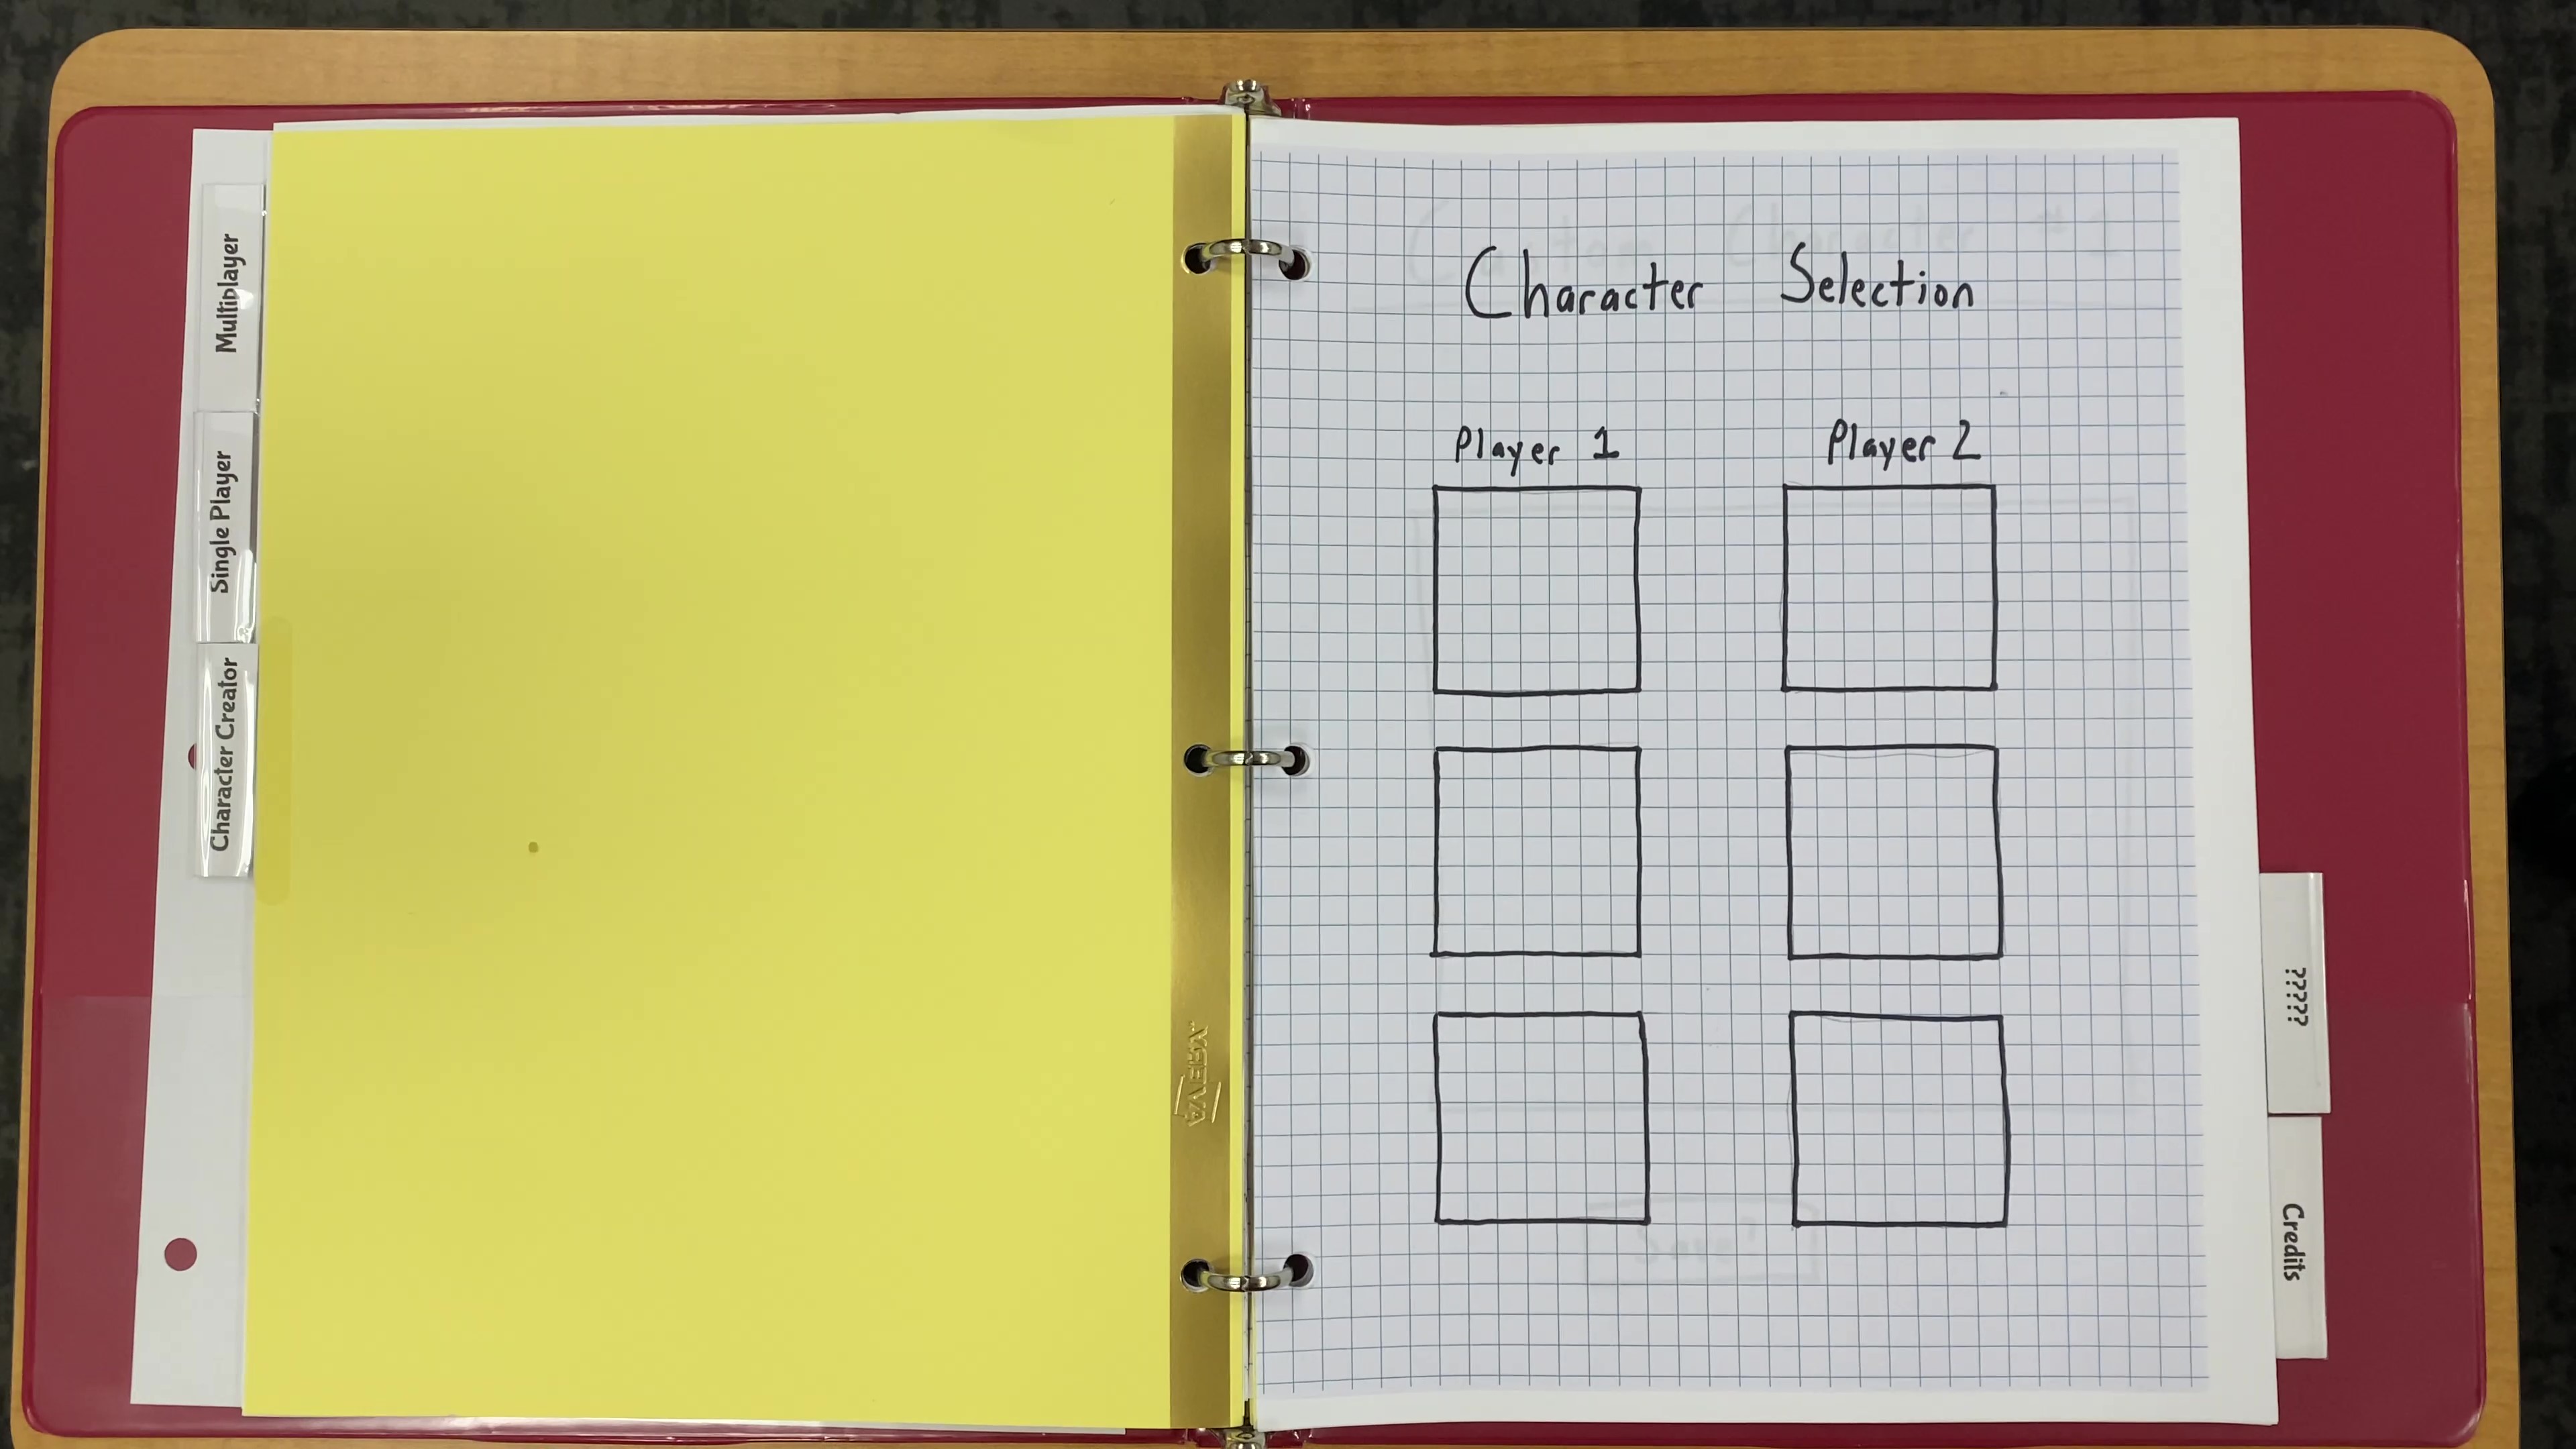 Multiplayer
Single Player
Character Creator
AVERY
Custom Character #1
Character Selection
Player 1 Player 2
Save
?????
Credits